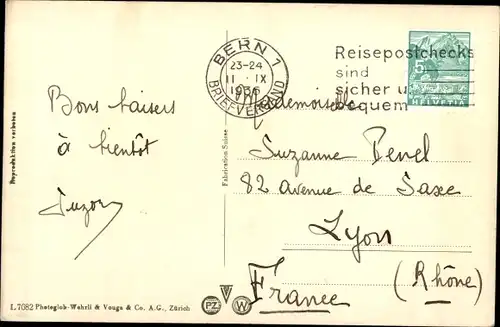 BERN 1
23-24
11 · IX
1936
BRIEFVERSAND
Reisepostchecks
sind
sicher u
bequem
5
HELVETIA
Reproduktion verboten
Fabrication Suisse
Bons baisers
à bientôt
Suzon
Mademoiselle
Suzanne Pevel
82 avenue de Saxe
Lyon
(Rhône)
France
L 7082 Photoglob-Wehrli & Vouga & Co. A.G., Zürich
PZ
W